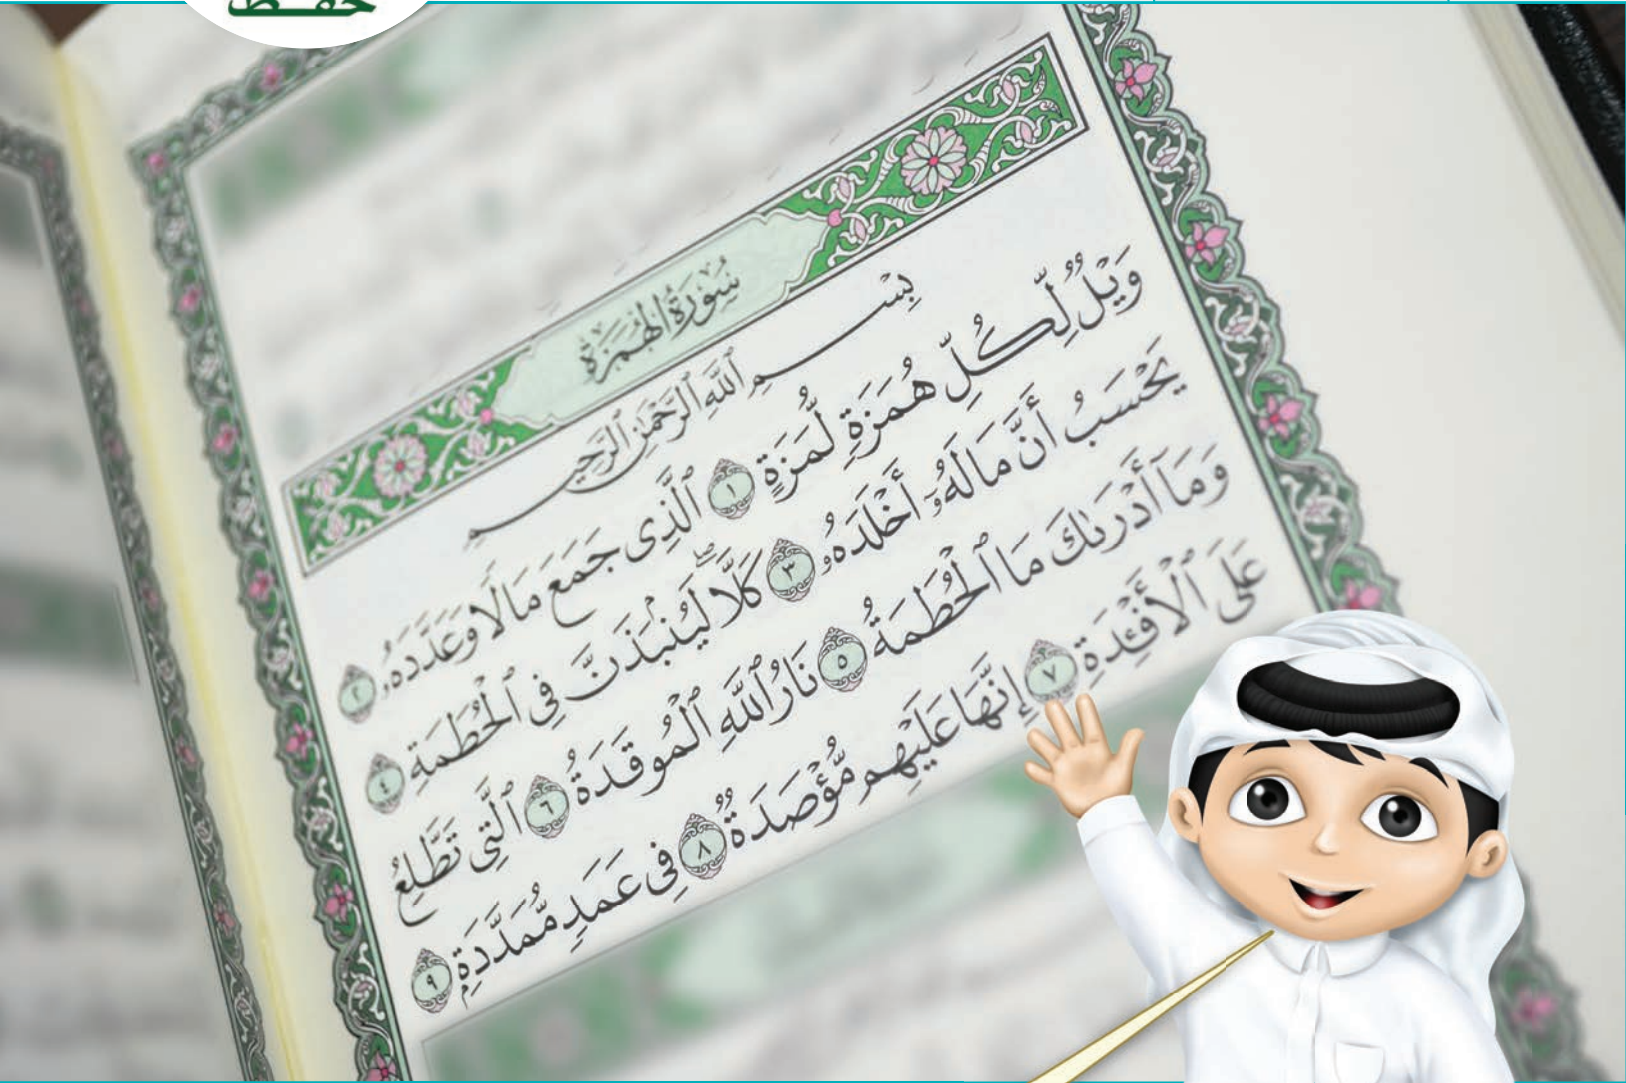 حفظ
سُورَةُ الهُمَزَةِ
بِسْمِ ٱللَّهِ ٱلرَّحْمَٰنِ ٱلرَّحِيمِ
وَيْلٌ لِّكُلِّ هُمَزَةٍ لُّمَزَةٍ ١ ٱلَّذِى جَمَعَ مَالًا وَعَدَّدَهُۥ ٢
يَحْسَبُ أَنَّ مَالَهُۥٓ أَخْلَدَهُۥ ٣ كَلَّاۖ لَيُنۢبَذَنَّ فِى ٱلْحُطَمَةِ ٤
وَمَآ أَدْرَىٰكَ مَا ٱلْحُطَمَةُ ٥ نَارُ ٱللَّهِ ٱلْمُوقَدَةُ ٦ ٱلَّتِى تَطَّلِعُ
عَلَى ٱلْأَفْـِٔدَةِ ٧ إِنَّهَا عَلَيْهِم مُّؤْصَدَةٌ ٨ فِى عَمَدٍ مُّمَدَّدَةٍۭ ٩